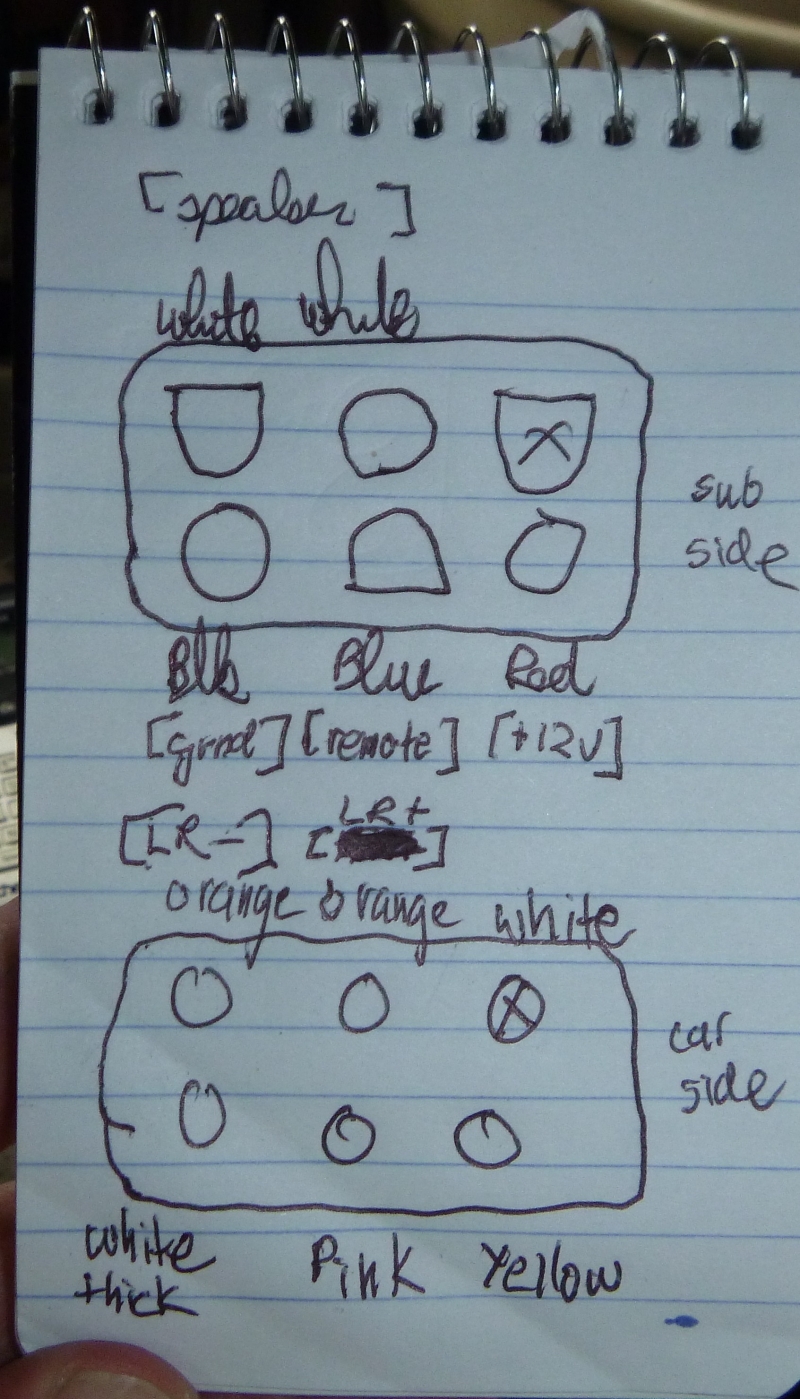 [speaker]
white white
X
sub
side
Blk Blue Red
[grnd] [remote] [+12V]
[LR-] [LR+]
orange orange white
X
car
side
white
thick
Pink Yellow